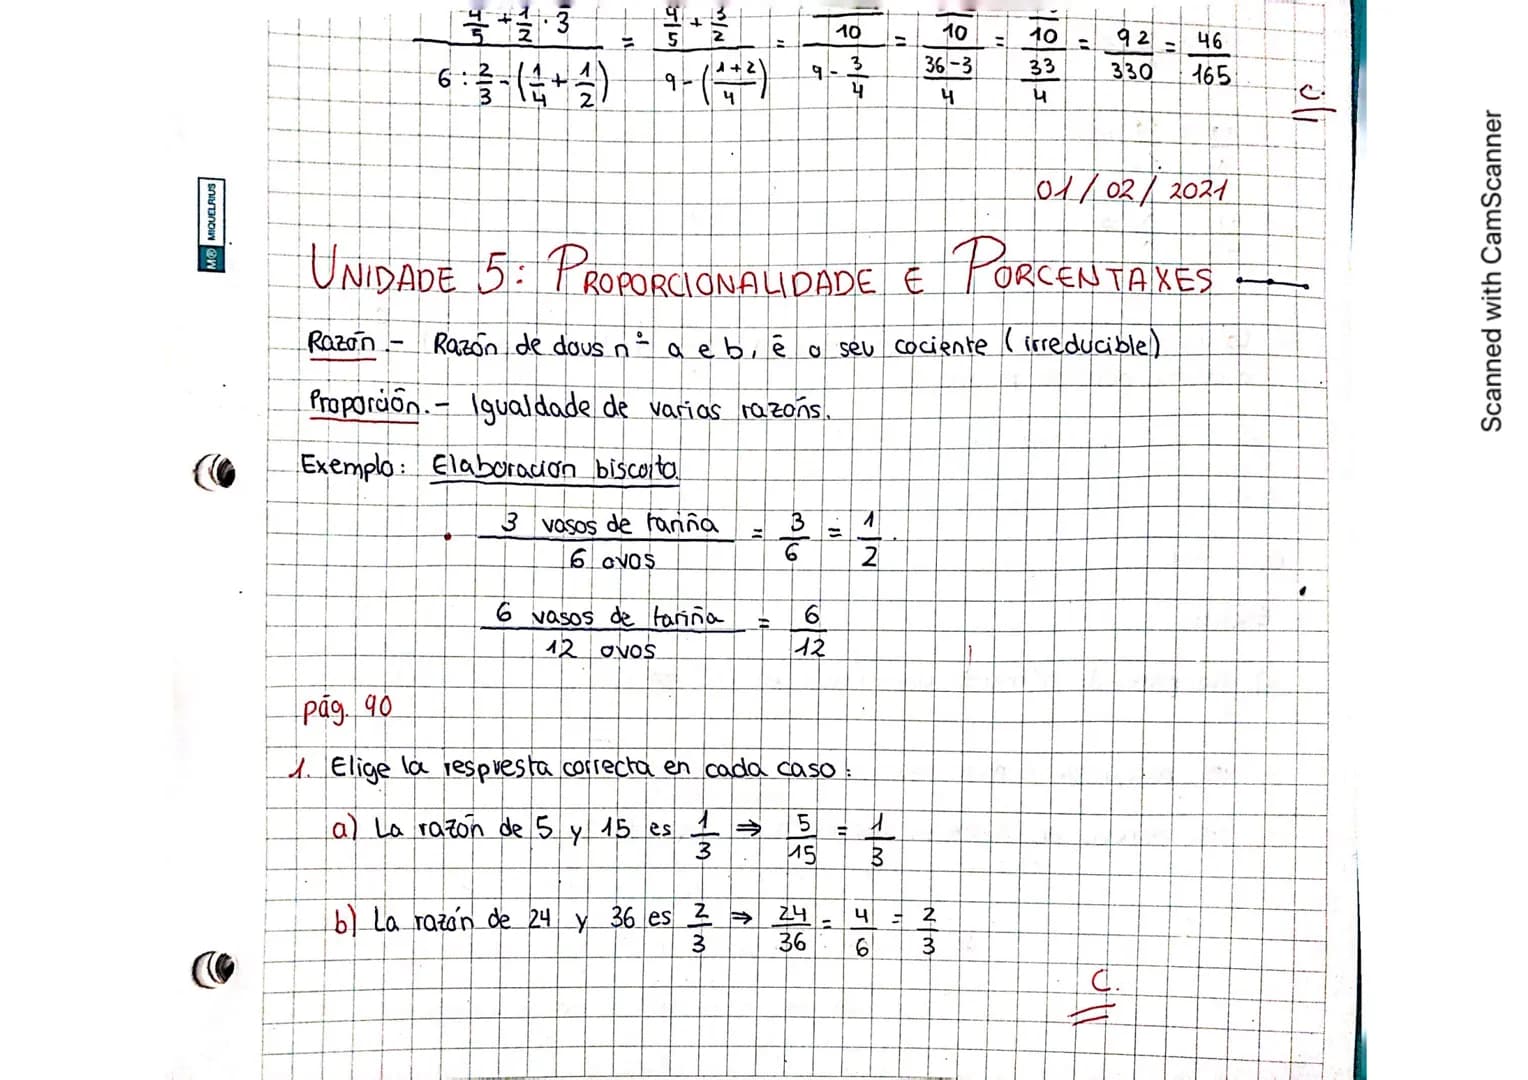 4/5 + 1/2 · 3 / 6 : 2/3 - (1/4 + 1/2) = 4/5 + 3/2 / 9 - (1+2/4) = 10 / 9 - 3/4 = 10 / 36-3/4 = 10 / 33/4 = 92/330 = 46/165
C.
01/02/2021
UNIDADE 5: PROPORCIONALIDADE E PORCENTAXES
Razón.- Razón de dous nº a e b, é o seu cociente (irreducible)
Proporción.- Igualdade de varias razóns.
Exemplo: Elaboración biscoito.
3 vasos de fariña / 6 ovos = 3/6 = 1/2.
6 vasos de fariña / 12 ovos = 6/12
pág. 90
1. Elige la respuesta correcta en cada caso:
a) La razón de 5 y 15 es 1/3 ⇒ 5/15 = 1/3
b) La razón de 24 y 36 es 2/3 ⇒ 24/36 = 4/6 = 2/3
C.
M® MIQUELRIUS
Scanned with CamScanner